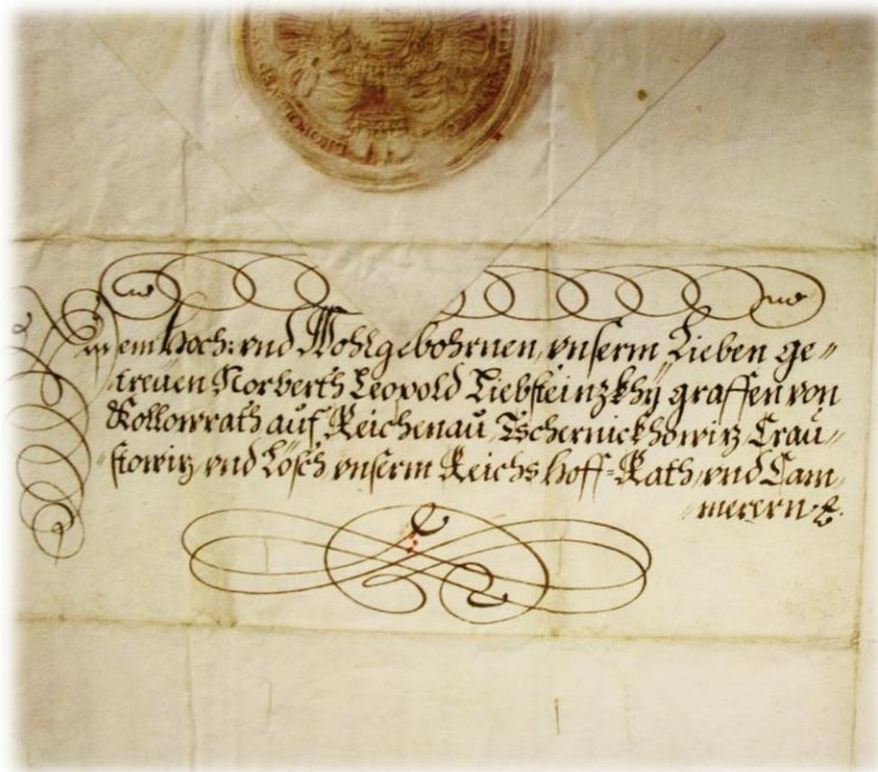 Dem Hoch: vnd Wohlgebohrnen, vnserm Lieben ge„
treüen Norberth Leopold Liebsteinzkhÿ graffen von
Kollowrath auf Reichenaŭ, Tschernickhowitz, Craŭ„
stowitz, vnd Lösch, vnserm Reichs Hoff-Rath, vnd Cam„
merern &.